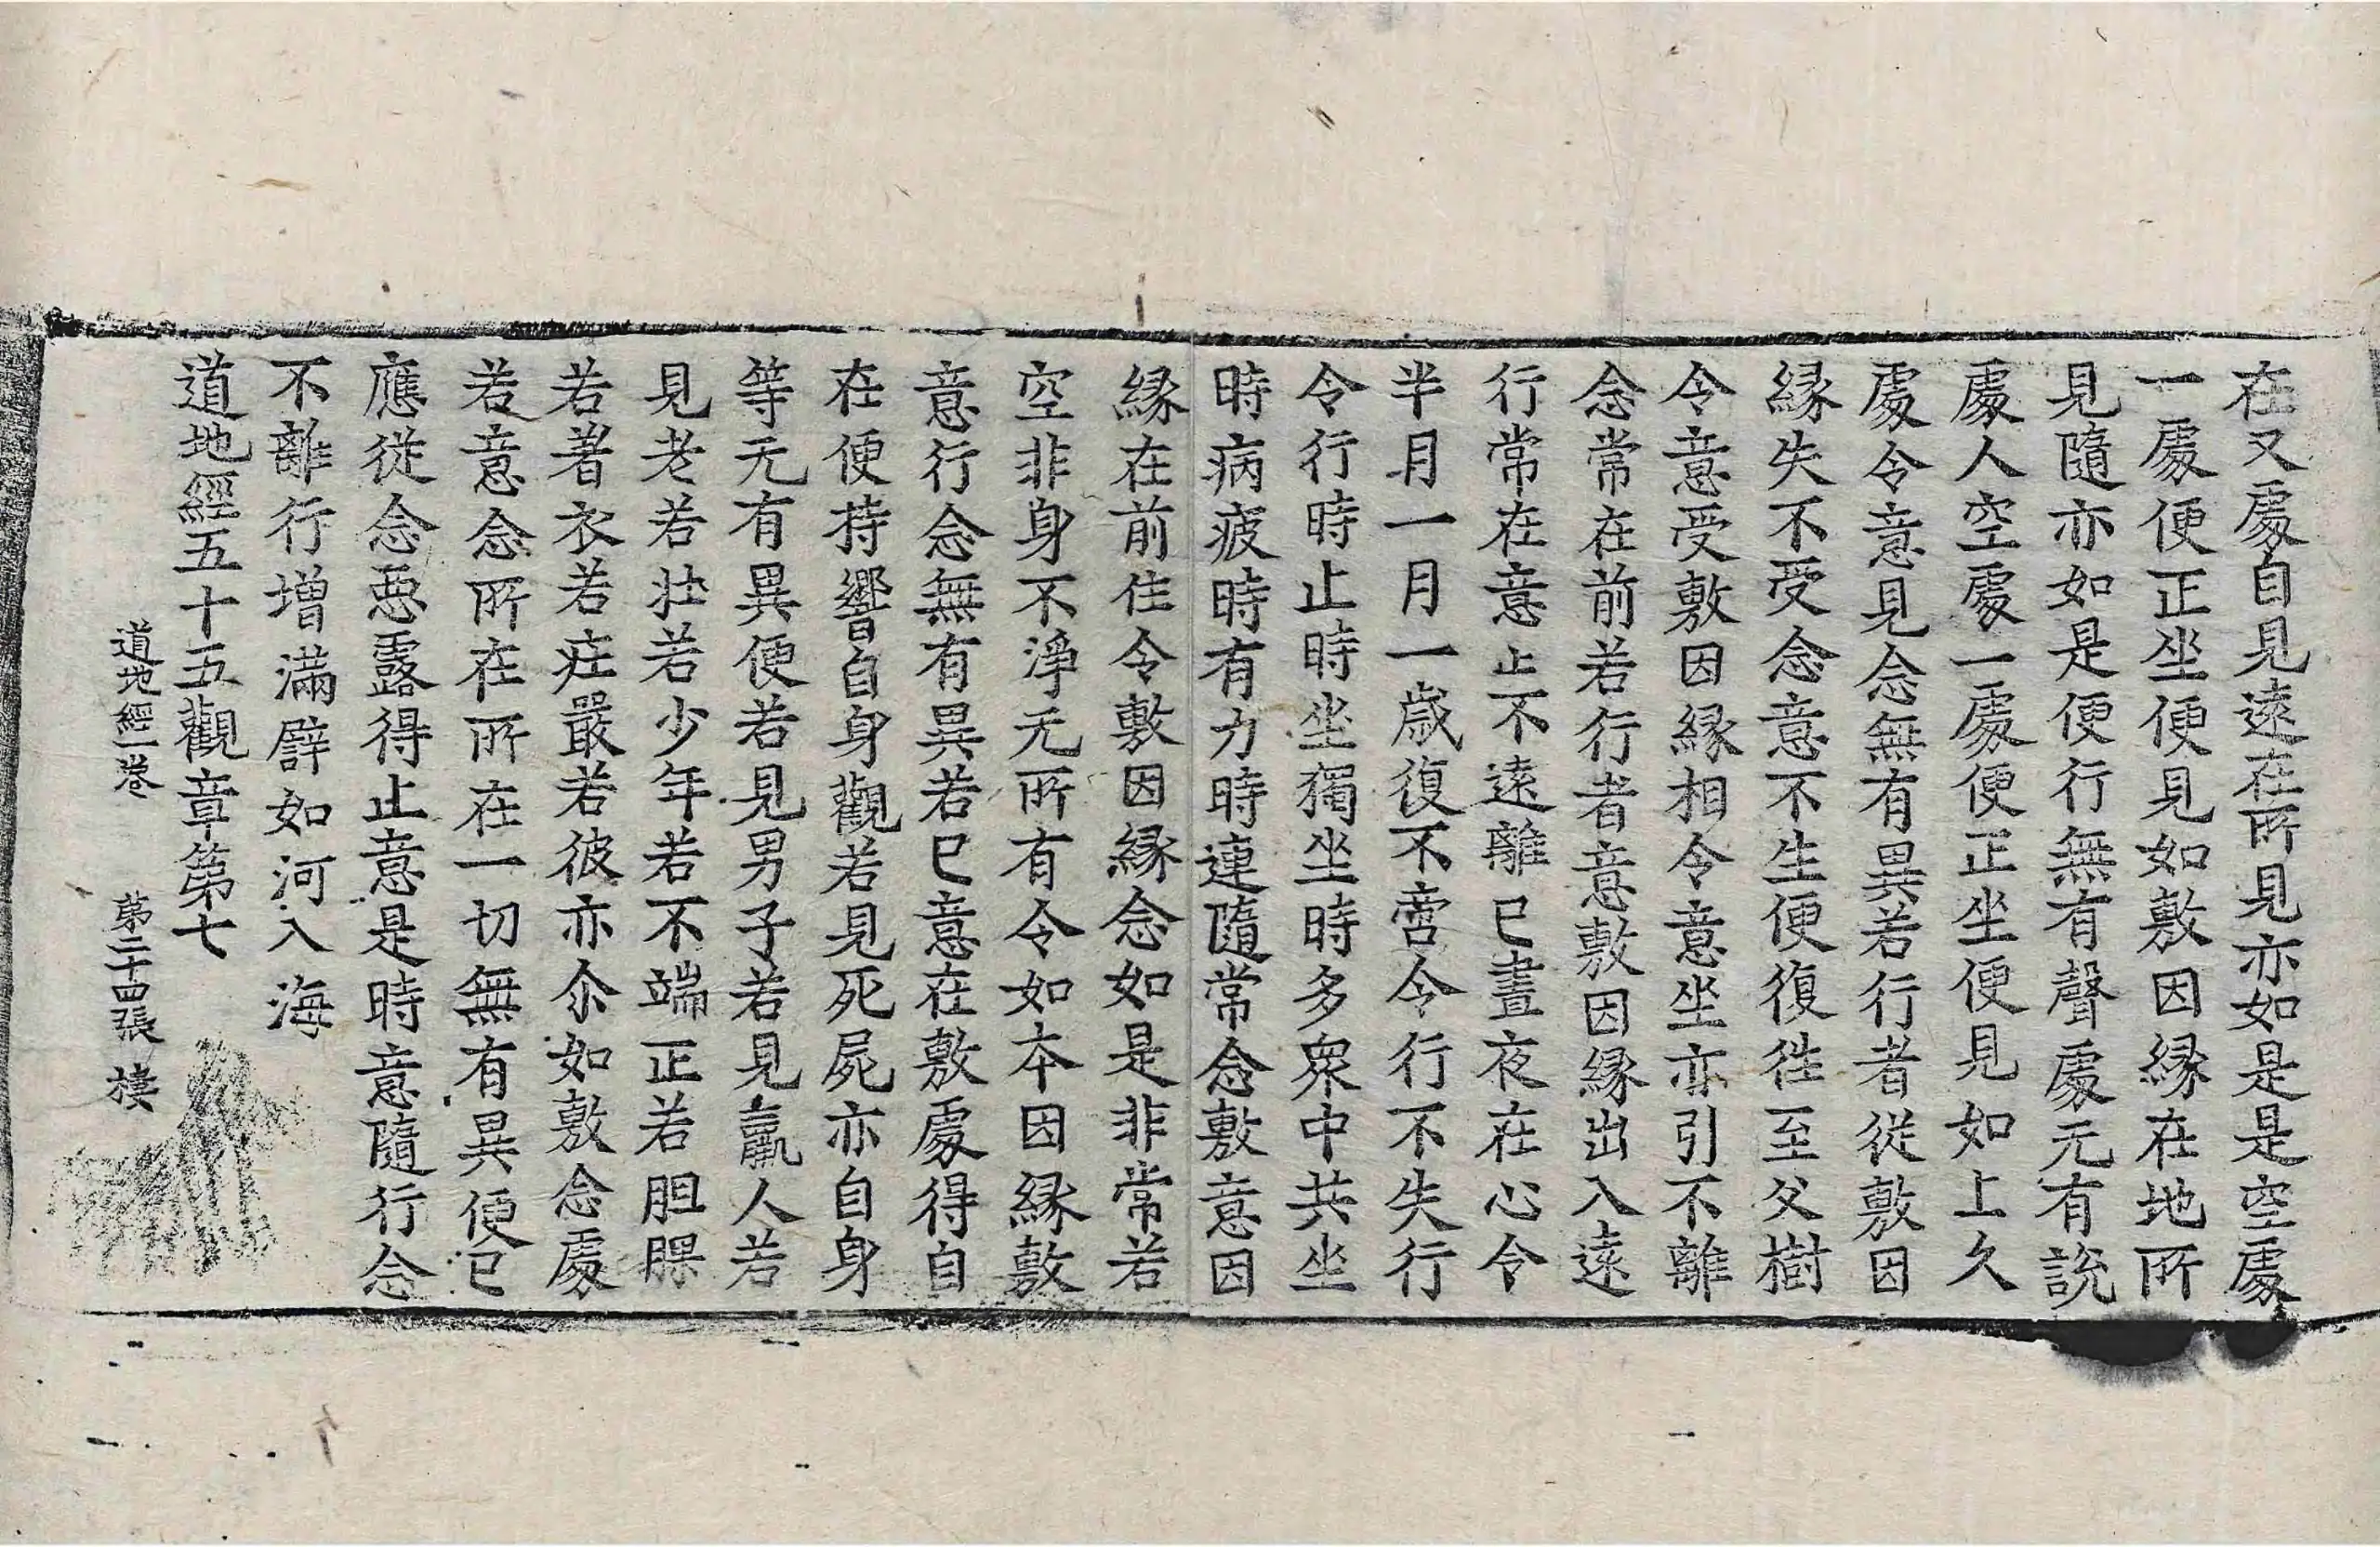 在又處自見遠在所見亦如是是空處
一處便正坐便見如敷因縁在地所
見隨亦如是便行無有聲處无有說
處人空處一處便正坐便見如上久
處令意見念無有異若行者從敷因
縁失不受念意不生便復徃至父樹
令意受敷因縁相令意坐亦引不離
念常在前若行者意敷因縁出入遠
行常在意止不遠離已晝夜在心令
半月一月一歳復不啻令行不失行
令行時止時坐獨坐時多衆中共坐
時病疲時有力時連隨常念敷意因
縁在前住令敷因縁念如是非常若
空非身不淨无所有令如本因縁敷
意行念無有異若已意在敷處得自
在便持響自身觀若見死屍亦自身
等无有異便若見男子若見羸人若
見老若壮若少年若不端正若胆腂
若著衣若疘嚴若彼亦尒如敷念處
若意念所在所在一切無有異便已
應從念悪露得止意是時意隨行念
不離行增滿辟如河入海
道地經五十五觀章第七
道地經一卷 第二十四張 㯋